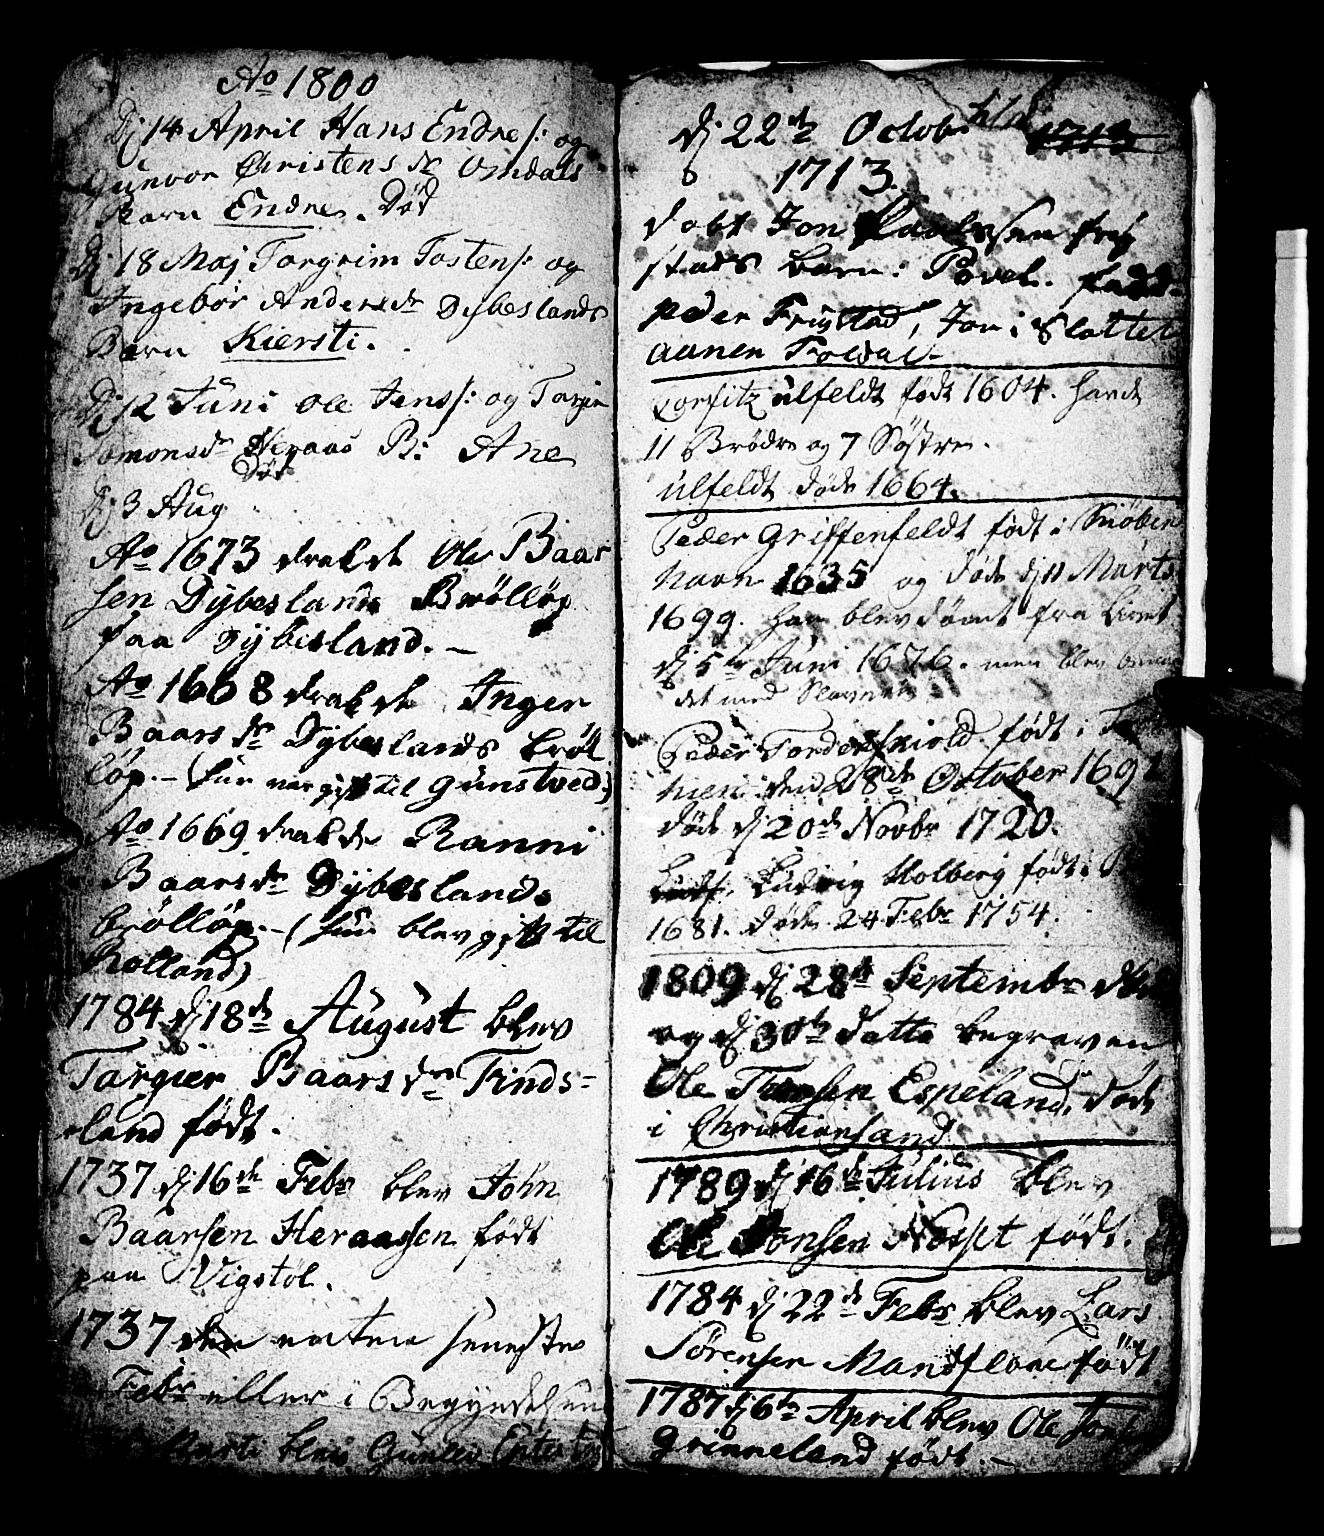 Ao 1800
Dj 14 April Hans Endres: og
Gunvor Christens dr Omdals
Barn Endre. Død
Dj 18 Maj Torgrim Tostens: og
Ingebor Anders dr Dybeslands
Barn Kiersti.
Dj 12 Juni Ole Jens: og Torjer
Somons dr Heraas B: Ane
Død
Dj 3 Aug
Ao 1673 drak de Ole Baar
sen Dybesland Bröllöp
paa Dybesland. —
Ao 1668 drak de Inger
Baars dr Dybeslands bröl
löp. — (hun var gift til Gunstved)
Ao 1669 drak de Ranni
Baars dr Dybeslands
bröllöp. — (hun blev gift til
Rolland)
1784 dj 18de August blev
Torgier Baars dr Finds-
land født.
1737 dj 16de Febr blev John
Baarsen Heraasen født
paa Vigstöl.
1737 den
Febr eller i Begyndelsen
Marti blev Gunild
dj 22de Octob 1713
1713.
døbt Jon Paulssen Try
stads barn: Povel. fadd-
Peder Trystad, Jon i Slottet
Aanen Foldal-
Corfitz Ulfeldt født 1604. havde
11 Brødre og 7 Søstre.
Ulfeldt døde 1664.
Peder Griffenfeldt født i Kiøben
havn 1635 og døde dj 11 Marts
1699. han blev dømt fra Livet
dj 5te Juni 1676. men blev
det med Slaveri
Peder Tordenskiold født i
hiem den 28de October 1691
døde dj 20de Novbr 1720.
Ludv. Ludvig Holberg født i
1681. døde 24 Febr 1754.
1809 dj 28de Septembr døde
og dj 30te datto begraven
Ole Espeland, døde
i Christiansand
1789 dj 16de Julius blev
Ole Jonsen Nøsset født.
1784 dj 22de Febr blev Lars
Sørensen Mandflaae født
1787 dj 6te April blev Ole
Grinneland født. —